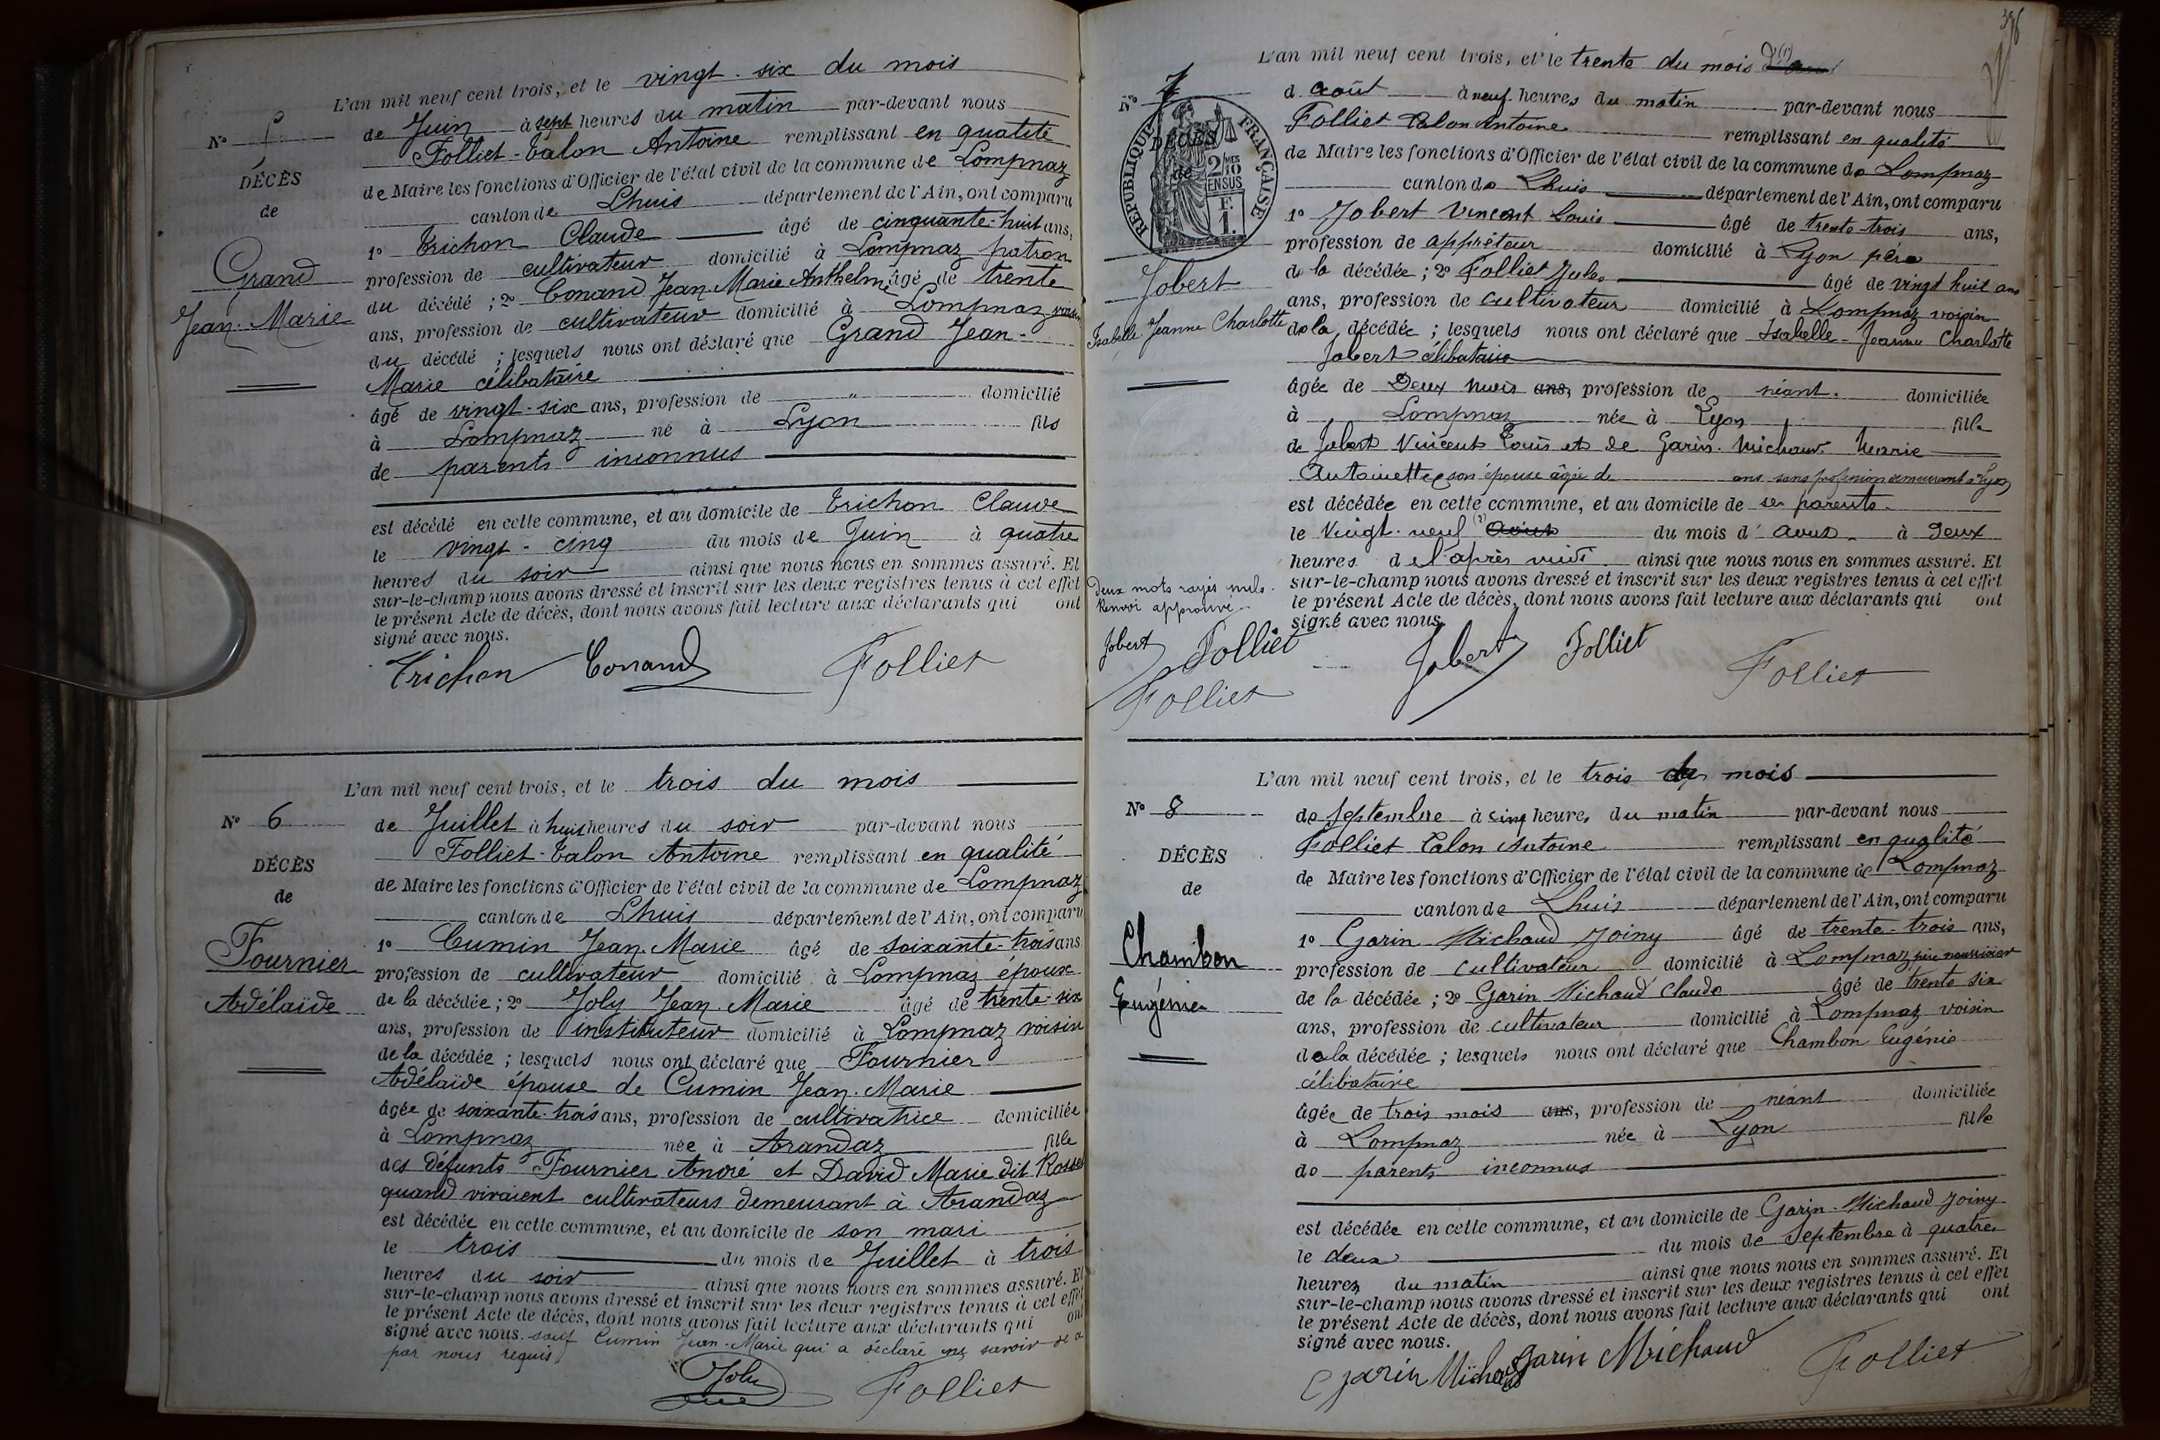 L'an mil neuf cent trois, et le vingt-six du mois
N° 5
de Juin à sept heures du matin par-devant nous
DÉCÈS
Folliet-Talon Antoine remplissant en qualité
de
de Maire les fonctions d'Officier de l'état civil de la commune de Lompnaz
canton de Lhuis département de l'Ain, ont comparu
1° Trichon Claude âgé de cinquante-huit ans,
Grand
profession de cultivateur domicilié à Lompnaz patron
Jean-Marie
du décédé ; 2° Conand Jean-Marie Anthelme âgé de trente
ans, profession de cultivateur domicilié à Lompnaz voisin
du décédé ; lesquels nous ont déclaré que Grand Jean-
Marie célibataire
âgé de vingt-six ans, profession de " domicilié
à Lompnaz né à Lyon fils
de parents inconnus
est décédé en cette commune, et au domicile de Trichon Claude
le vingt-cinq du mois de Juin à quatre
heures du soir ainsi que nous nous en sommes assuré. Et
sur-le-champ nous avons dressé et inscrit sur les deux registres tenus à cet effet
le présent Acte de décès, dont nous avons fait lecture aux déclarants qui ont
signé avec nous.
Trichon Conand Folliet
L'an mil neuf cent trois, et le trois du mois
N° 6
de Juillet à huit heures du soir par-devant nous
DÉCÈS
Folliet-Talon Antoine remplissant en qualité
de
de Maire les fonctions d'Officier de l'état civil de la commune de Lompnaz
canton de Lhuis département de l'Ain, ont comparu
Fournier
1° Cumin Jean-Marie âgé de soixante-trois ans
profession de cultivateur domicilié à Lompnaz époux
Adélaïde
de la décédée ; 2° Joly Jean-Marie âgé de trente-six
ans, profession de instituteur domicilié à Lompnaz voisin
de la décédée ; lesquels nous ont déclaré que Fournier
Adélaïde épouse de Cumin Jean-Marie
âgée de soixante-trois ans, profession de cultivatrice domiciliée
à Lompnaz née à Arandaz fille
des défunts Fournier André et David Marie dit Rosset
quand vivaient cultivateurs demeurant à Arandaz
est décédée en cette commune, et au domicile de son mari
le trois du mois de Juillet à trois
heures du soir ainsi que nous nous en sommes assuré. Et
sur-le-champ nous avons dressé et inscrit sur les deux registres tenus à cet effet
le présent Acte de décès, dont nous avons fait lecture aux déclarants qui ont
signé avec nous. sauf Cumin Jean-Marie qui a déclaré ne savoir de ce
par nous requis
Joly Folliet
396
L'an mil neuf cent trois, et le trente du mois d'(1) août
N° 7
d août à neuf heures du matin par-devant nous
DÉCÈS
Folliet Talon Antoine remplissant en qualité
de
RÉPUBLIQUE FRANÇAISE
2/10 EN SUS
F. 1.
de Maire les fonctions d'Officier de l'état civil de la commune de Lompnaz
canton de Lhuis département de l'Ain, ont comparu
1° Jobert Vincent Louis âgé de trente-trois ans,
profession de apprêteur domicilié à Lyon père
Jobert
de la décédée ; 2° Folliet Jules âgé de vingt huit ans
ans, profession de cultivateur domicilié à Lompnaz voisin
Isabelle Jeanne Charlotte
de la décédée ; lesquels nous ont déclaré que Isabelle-Jeanne Charlotte
Jobert célibataire
âgée de Deux mois ans, profession de néant. domiciliée
à Lompnaz née à Lyon fille
de Jobert Vincent Louis et de Garin-Michaud Marie
Antoinette son épouse âgée de ans sans profession demeurant à Lyon
est décédée en cette commune, et au domicile de ses parents.
le Vingt-neuf (1) Août du mois d'août à Deux
heures de l'après midi ainsi que nous nous en sommes assuré. Et
sur-le-champ nous avons dressé et inscrit sur les deux registres tenus à cet effet
le présent Acte de décès, dont nous avons fait lecture aux déclarants qui ont
signé avec nous.
Deux mots rayés nuls.
Renvoi approuvé.
Jobert Folliet
Folliet
Jobert Folliet Folliet
L'an mil neuf cent trois, et le trois du mois
N° 8
de septembre à cinq heures du matin par-devant nous
DÉCÈS
Folliet Talon Antoine remplissant en qualité
de
de Maire les fonctions d'Officier de l'état civil de la commune de Lompnaz
canton de Lhuis département de l'Ain, ont comparu
Chambon
1° Garin Michaud Joiny âgé de trente-trois ans,
profession de cultivateur domicilié à Lompnaz père nourricier
Eugénie
de la décédée ; 2° Garin Michaud Claude âgé de trente six
ans, profession de cultivateur domicilié à Lompnaz voisin
de la décédée ; lesquels nous ont déclaré que Chambon Eugénie
célibataire
âgée de trois mois ans, profession de néant domiciliée
à Lompnaz née à Lyon fille
de parents inconnus
est décédée en cette commune, et au domicile de Garin-Michaud Joiny
le deux du mois de Septembre à quatre
heures du matin ainsi que nous nous en sommes assuré. Et
sur-le-champ nous avons dressé et inscrit sur les deux registres tenus à cet effet
le présent Acte de décès, dont nous avons fait lecture aux déclarants qui ont
signé avec nous.
Garin Michaud Garin Michaud Folliet